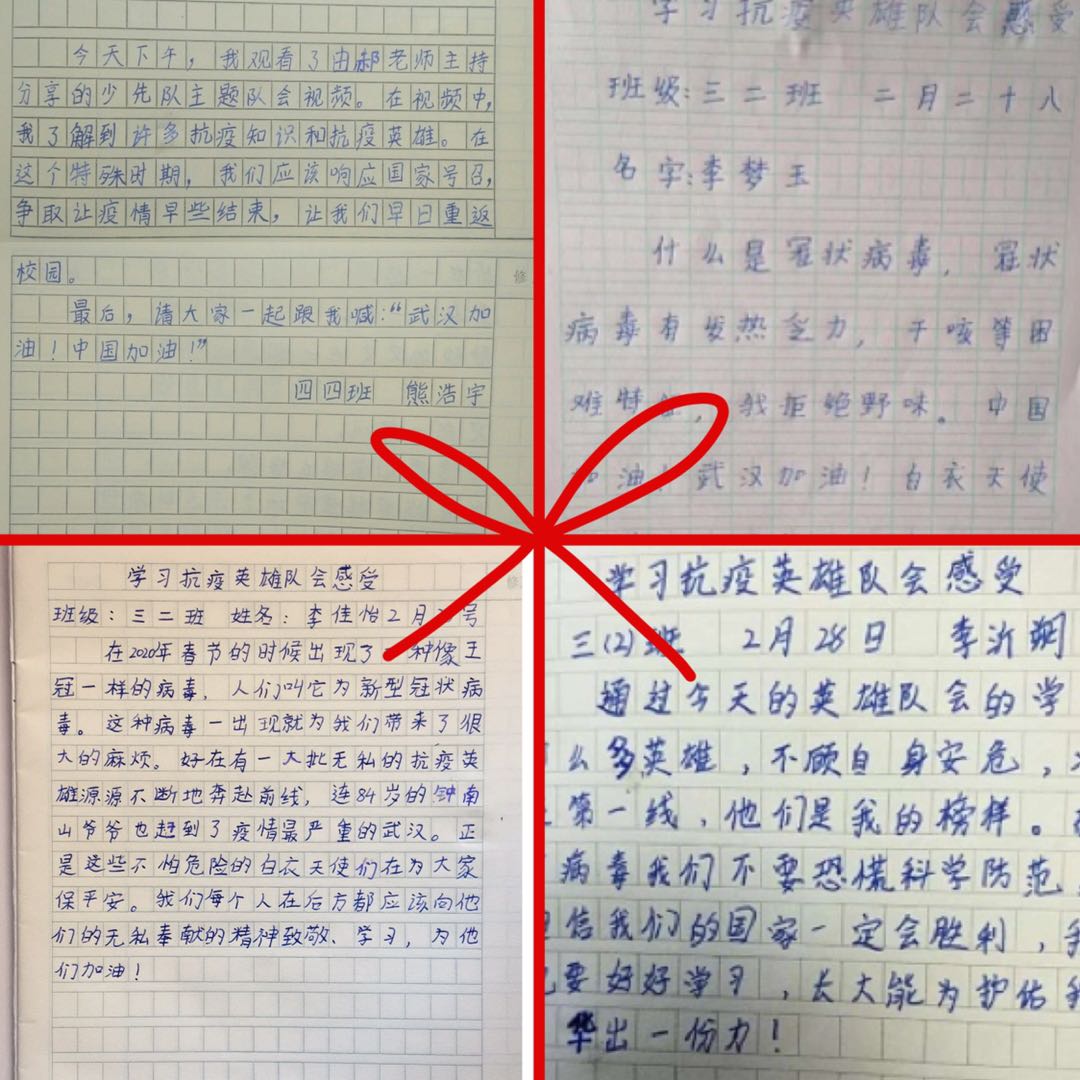 今天下午，我观看了由郝老师主持
分享的少先队主题队会视频。在视频中，
我了解到许多抗疫知识和抗疫英雄。在
这个特殊时期，我们应该响应国家号召，
争取让疫情早些结束，让我们早日重返
校园。
最后，请大家一起跟我喊：“武汉加
油！中国加油！”
四四班 熊浩宇
学习抗疫英雄队会感受
班级：三二班 二月二十八
名字：李梦玉
什么是冠状病毒，冠状
病毒有发热乏力，干咳等困
难特征，我拒绝野味。中国
加油！武汉加油！白衣天使
学习抗疫英雄队会感受
班级：三二班 姓名：李佳怡2月 号
在2020年春节的时候出现了一种像王
冠一样的病毒，人们叫它为新型冠状病
毒。这种病毒一出现就为我们带来了很
大的麻烦。好在有一大批无私的抗疫英
雄源源不断地奔赴前线，连84岁的钟南
山爷爷也赶到了疫情最严重的武汉。正
是这些不怕危险的白衣天使们在为大家
保平安。我们每个人在后方都应该向他
们的无私奉献的精神致敬、学习，为他
们加油！
学习抗疫英雄队会感受
三(2)班 2月28日 李沂娴
通过今天的英雄队会的学
么多英雄，不顾自身安危，
第一线，他们是我的榜样。
病毒我们不要恐慌科学防范
信我们的国家一定会胜利，我
要好好学习，长大能为护佑我
华出一份力！